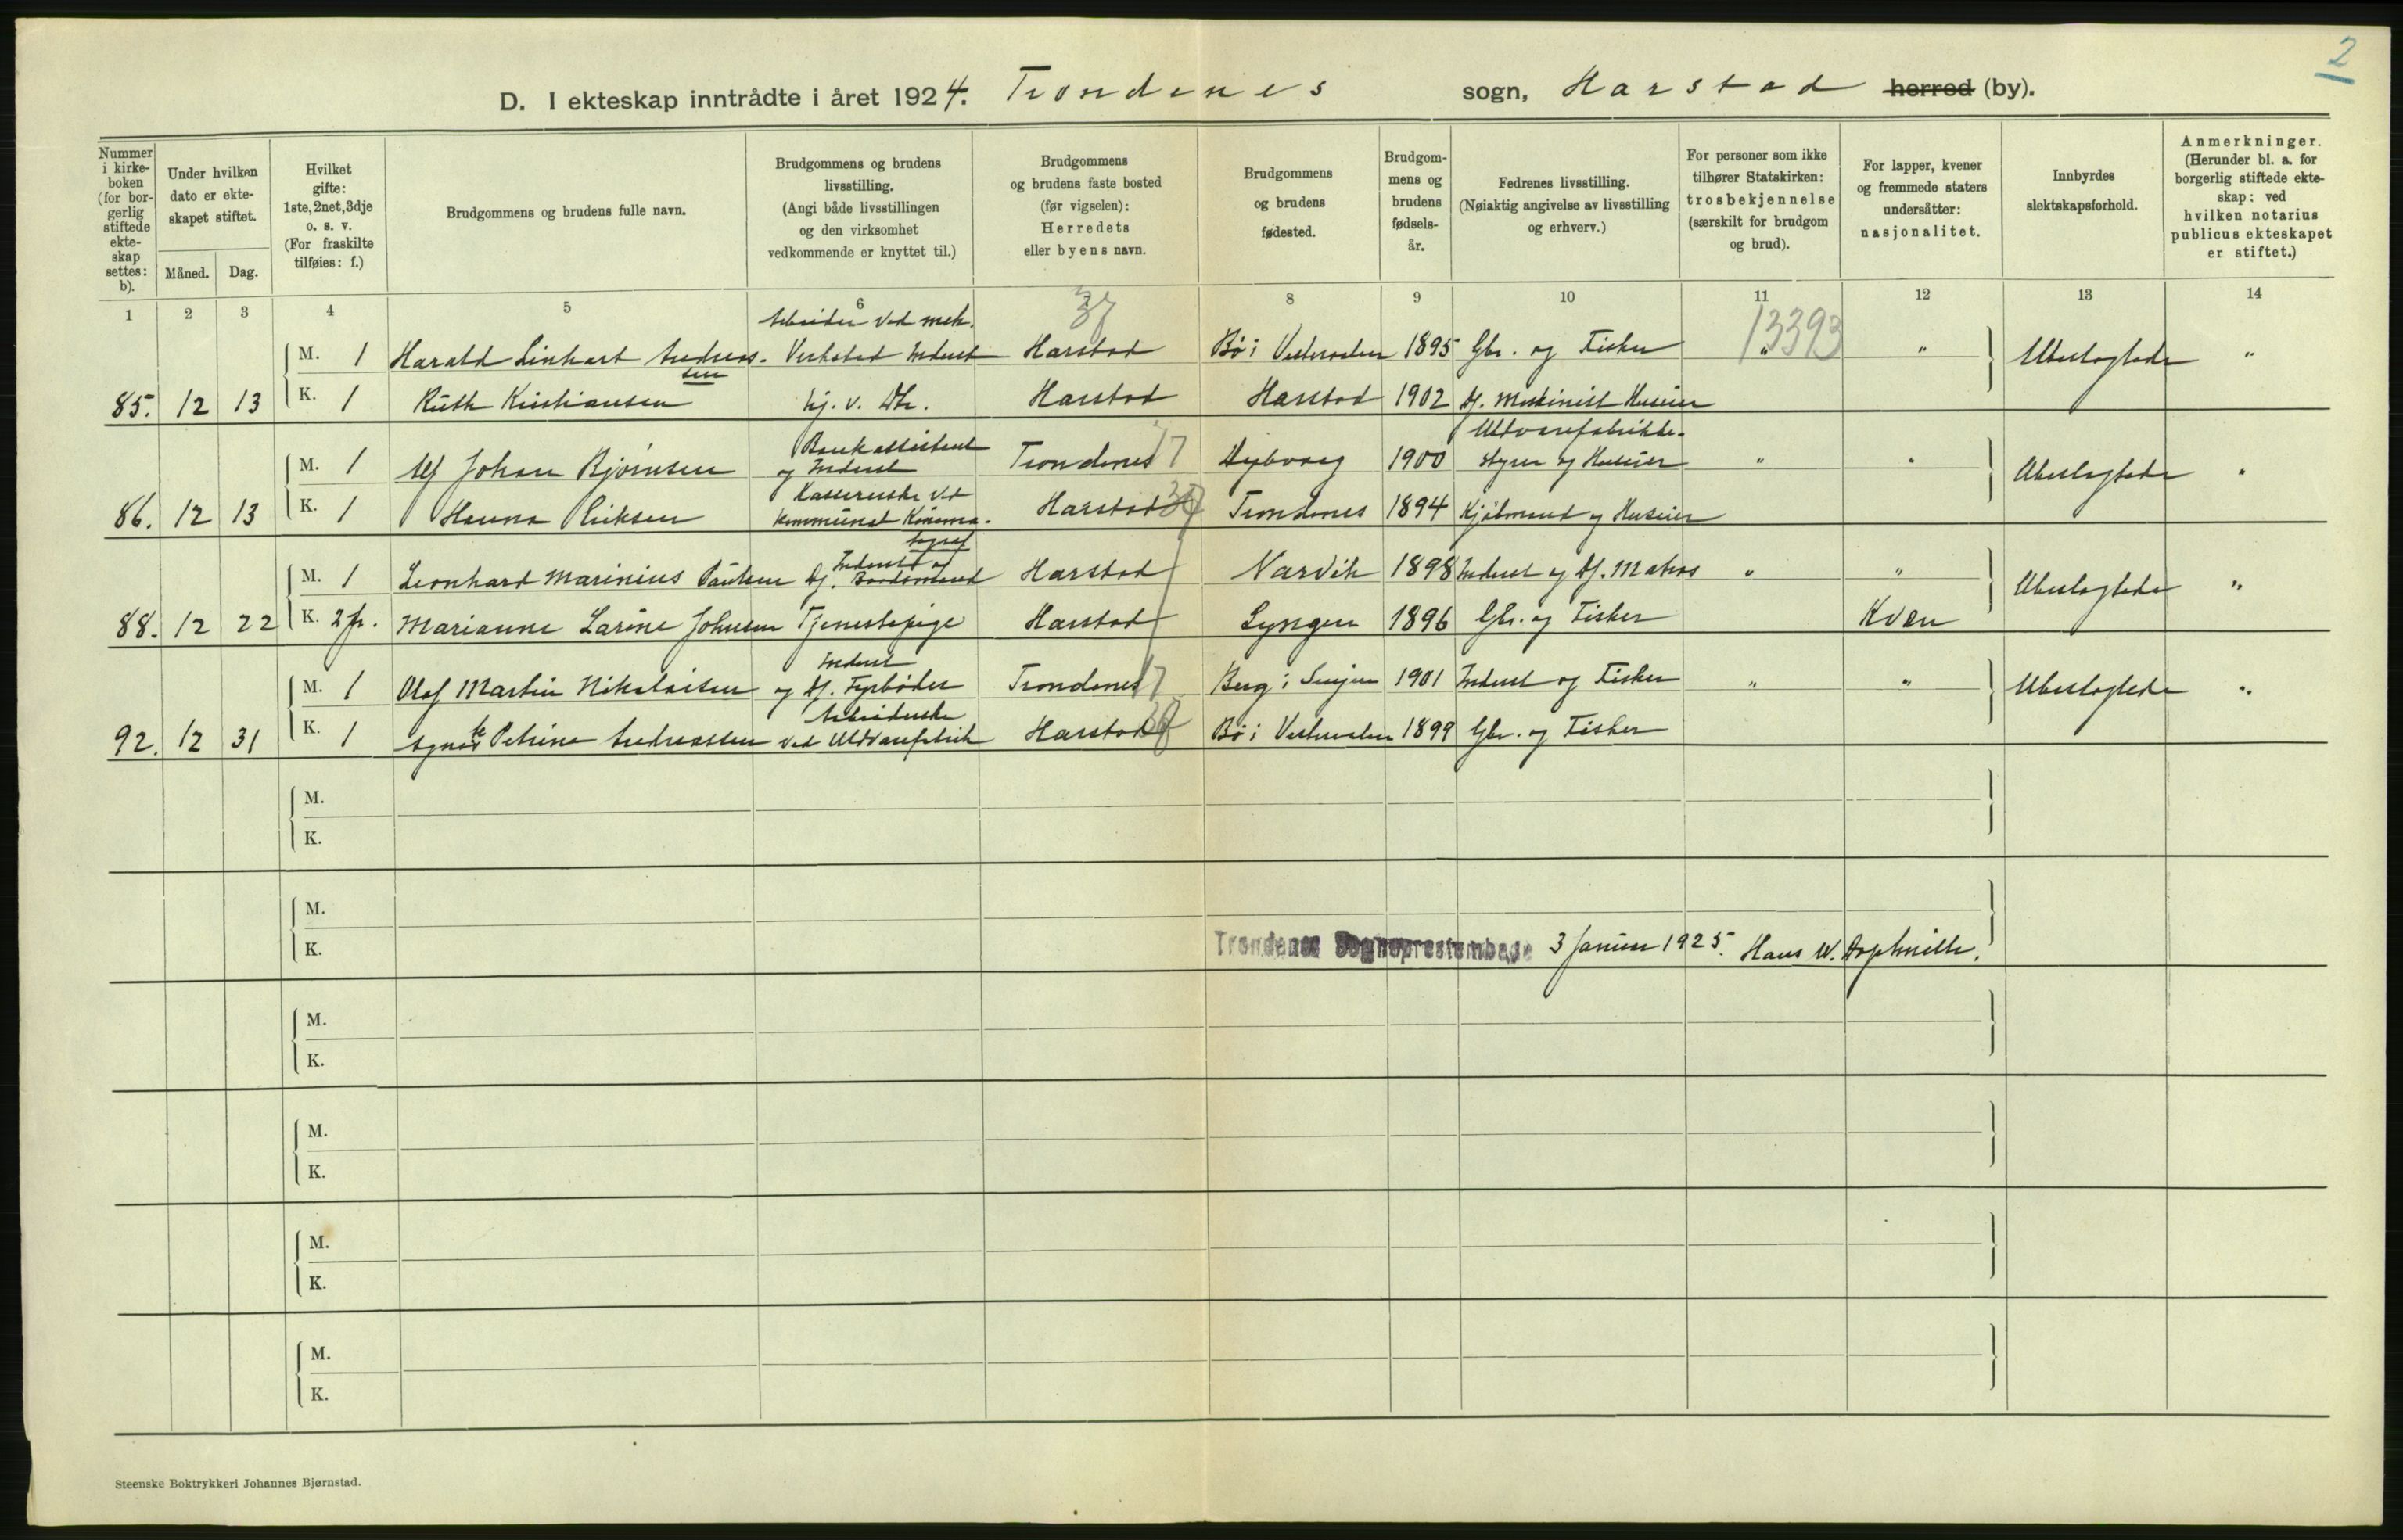 2
D. I ekteskap inntrådte i året 1924. Trondenes sogn, Harstad herred (by).
Nummer i kirkeboken (for borgerlig stiftede ekteskap settes: b).
Under hvilken dato er ekteskapet stiftet.
Måned. Dag.
Hvilket gifte: 1ste, 2net, 3dje o. s. v. (For fraskilte tilføies: f.)
Brudgommens og brudens fulle navn.
Brudgommens og brudens livsstilling. (Angi både livsstillingen og den virksomhet vedkommende er knyttet til.)
Brudgommens og brudens faste bosted (før vigselen): Herredets eller byens navn.
Brudgommens og brudens fødested.
Brudgommens og brudens fødselsår.
Fedrenes livsstilling. (Nøiaktig angivelse av livsstilling og erhverv.)
For personer som ikke tilhører Statskirken: trosbekjennelse (særskilt for brudgom og brud).
For lapper, kvener og fremmede staters undersåtter: nasjonalitet.
Innbyrdes slektskapsforhold.
Anmerkninger. (Herunder bl. a. for borgerlig stiftede ekteskap: ved hvilken notarius publicus ekteskapet er stiftet.)
1 2 3 4 5 6 8 9 10 11 12 13 14
37 13393
Arbeider ved mek.
M. 1 Harald Linhart Andreas- Verksted Inderst Harstad Bø i Vesteraalen 1895 Gbr. og Fisker " " Ubeslegtede "
sen
85. 12 13 K. 1 Ruth Kristiansen hj. v. Harstad Harstad 1902 Df. Maskinist Huseier
Bankassistent Uldvarefabrikk-
M. 1 Alf Johan Bjørnsen og Inderst Trondenes 17 Dybvaag 1900 styrer og Huseier " " Ubeslegtede "
Kassererske ved
86. 12 13 K. 1 Hanna Eriksen kommunal Kinema- Harstad 37 Trondenes 1894 Kjøbmand og Huseier
tograf
Inderst og
M. 1 Leonhard Marinius Paulsen Df. Baadsmand Harstad Narvik 1898 Inderst og Df. Matros " " Ubeslegtede "
88. 12 22 K. 2 fr. Marianne Larine Johnsen Tjenestepige Harstad Lyngen 1896 Gbr. og Fisker Kvæn
Inderst
M. 1 Olaf Martin Nikolaisen og Df. Fyrbøder Trondenes 17 Berg i Senjen 1901 Inderst og Fisker " " Ubeslegtede "
Arbeiderske
92. 12 31 K. 1 Petrine Andreassen ved Uldvarefabrik Harstad 37 Bø i Vesteraalen 1899 Gbr. og Fisker
M.
K.
M.
K.
Trondenes Sogneprestembede 3 Januar 1925. Hans W.
M.
K.
M.
K.
M.
K.
M.
K.
Steenske Boktrykkeri Johannes Bjørnstad.